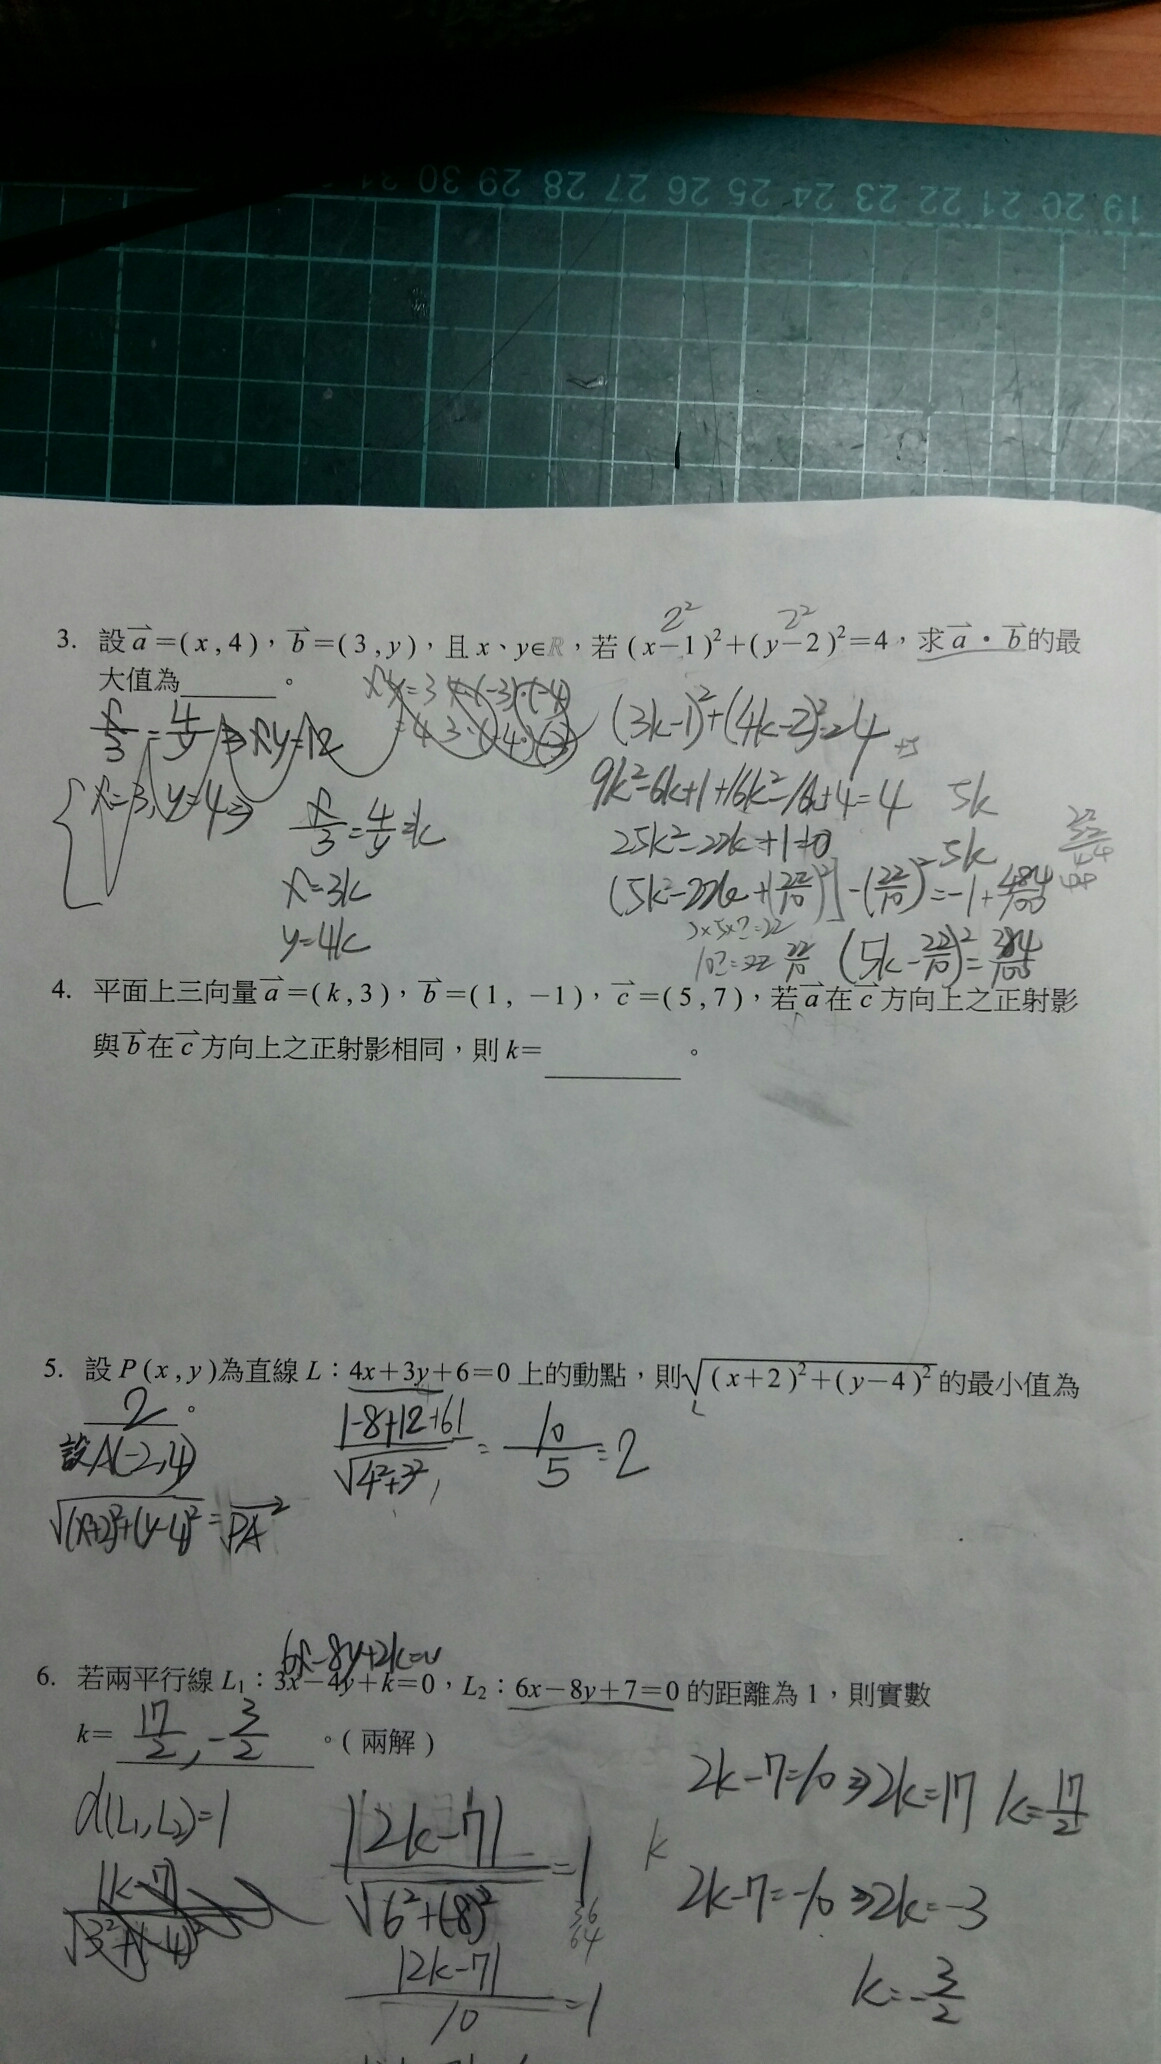 19 20 21 22 23 24 25 26 27 28 29 30 31
3. 設 a =(x,4),b =(3,y),且 x、y∈R,若 (x−1)²+(y−2)²=4,求 a・b 的最
2² 2²
大值為 。
x/3 = 4/y ⇒ xy=12
x=3,y=4⇒
x/3 = 4/y =k
x=3k
y=4k
(3k−1)²+(4k−2)²=4
9k²−6k+1+16k²−16k+4=4
25k²−22k+1=0
5k
5k
(5k−22/10)²=384/100
4. 平面上三向量 a =(k,3),b =(1, −1),c =(5,7),若 a 在 c 方向上之正射影
與 b 在 c 方向上之正射影相同,則 k= 。
5. 設 P(x,y)為直線 L:4x+3y+6=0 上的動點,則√(x+2)²+(y−4)² 的最小值為
2 。
設A(-2,4)
√(x+2)²+(y-4)² = √PA²
|-8+12+6| / √4²+3² = 10/5 = 2
6x−8y+2k=0
6. 若兩平行線 L₁:3x−4y+k=0,L₂:6x−8y+7=0 的距離為 1,則實數
k= 17/2 , −3/2 。(兩解)
d(L₁,L₂)=1
|k-7| / √3²+(-4)²
|2k−7| / √6²+(-8)² =1
36
64
|2k−7| / 10 =1
2k−7=10⇒2k=17 k=17/2
k
2k−7=−10⇒2k=−3
k=−3/2